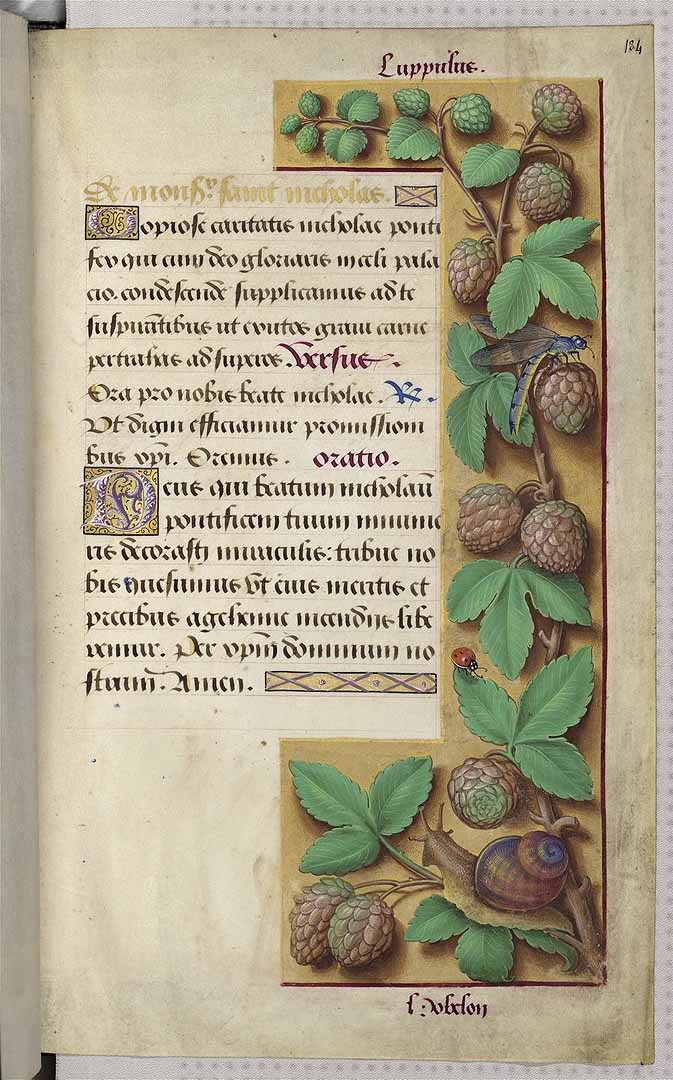 184
Luppulus.
De monsr saint nicholas.
Copiose caritatis nicholae ponti
fex qui cum deo gloriaris in celi pala
cio. condescende supplicamus ad te
suspirātibus ut exutos graui carne
pertrahas ad superos. Versus.
Ora pro nobis beate nicholae. R.
Vt digni efficiamur promissioni
bus xpi. Oremus. oratio.
Deus qui beatum nicholaū
pontificem tuum innume
ris decorasti miraculis: tribue no
bis quesumus vt eius meritis et
precibus a gehenne incendijs libe
remur. Per xpm̄ dominum no
strum. Amen.
l'obelon